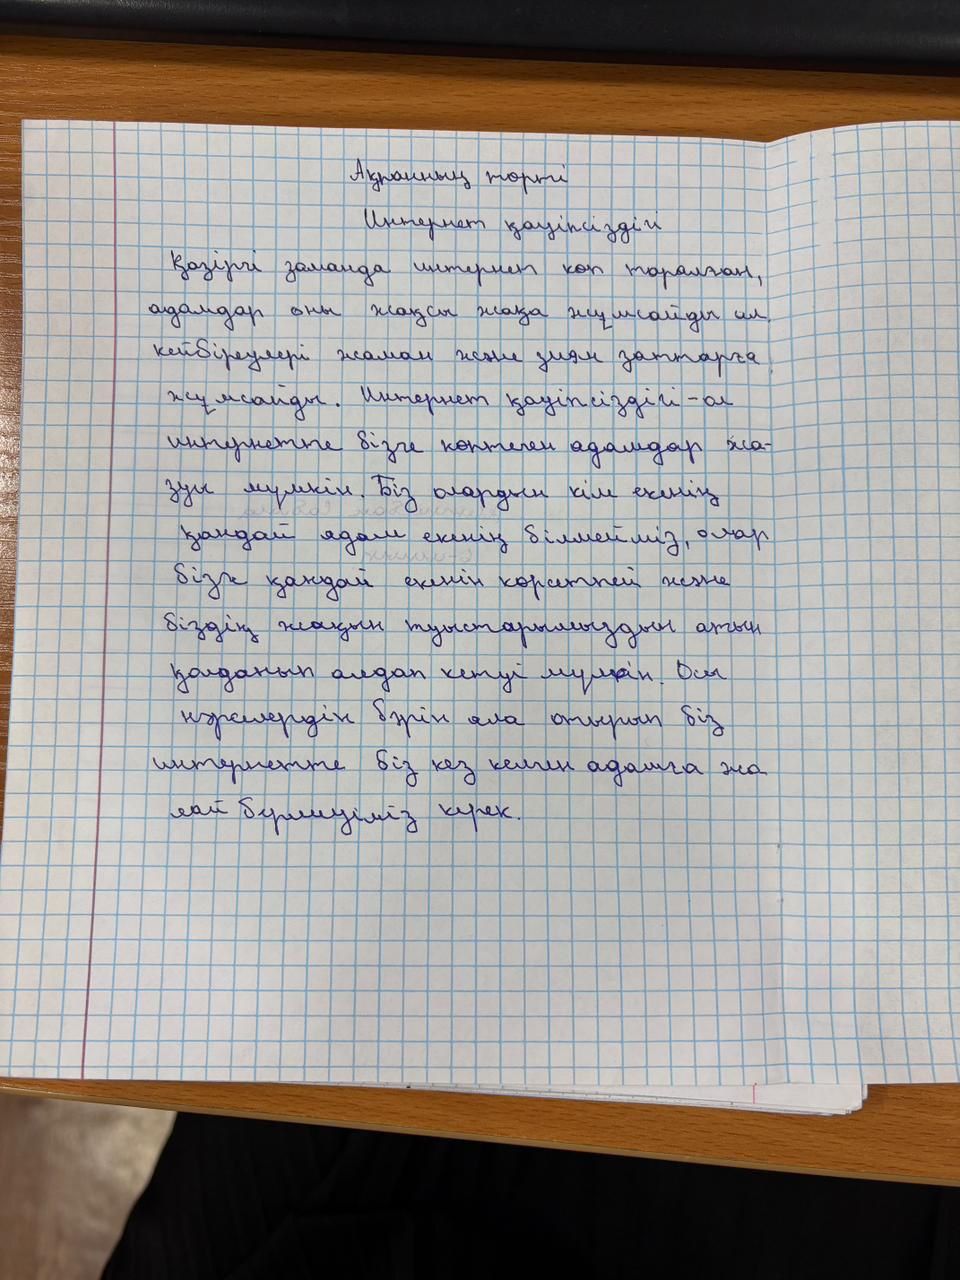 Ақпанның төрті
Интернет қауіпсіздігі
Қазіргі заманда интернет көп таралған,
адамдар оны жақсы жаққа жұмсайды ал,
кейбіреулері жаман және зиян заттарға
жұмсайды. Интернет қауіпсіздігі - ол
интернетте бізге көптеген адамдар жа-
зуы мүмкін. Біз олардын кім екенің
қандай адам екенің білмейміз, олар
бізге қандай екенін көрсетпей және
біздің жақын туыстарымыздын атын
қолданып алдап кетуі мүмкін. Осы
нәрселердін бәрін ала отырып біз
интернетте біз кез келген адамға жа
бермеуіміз керек.